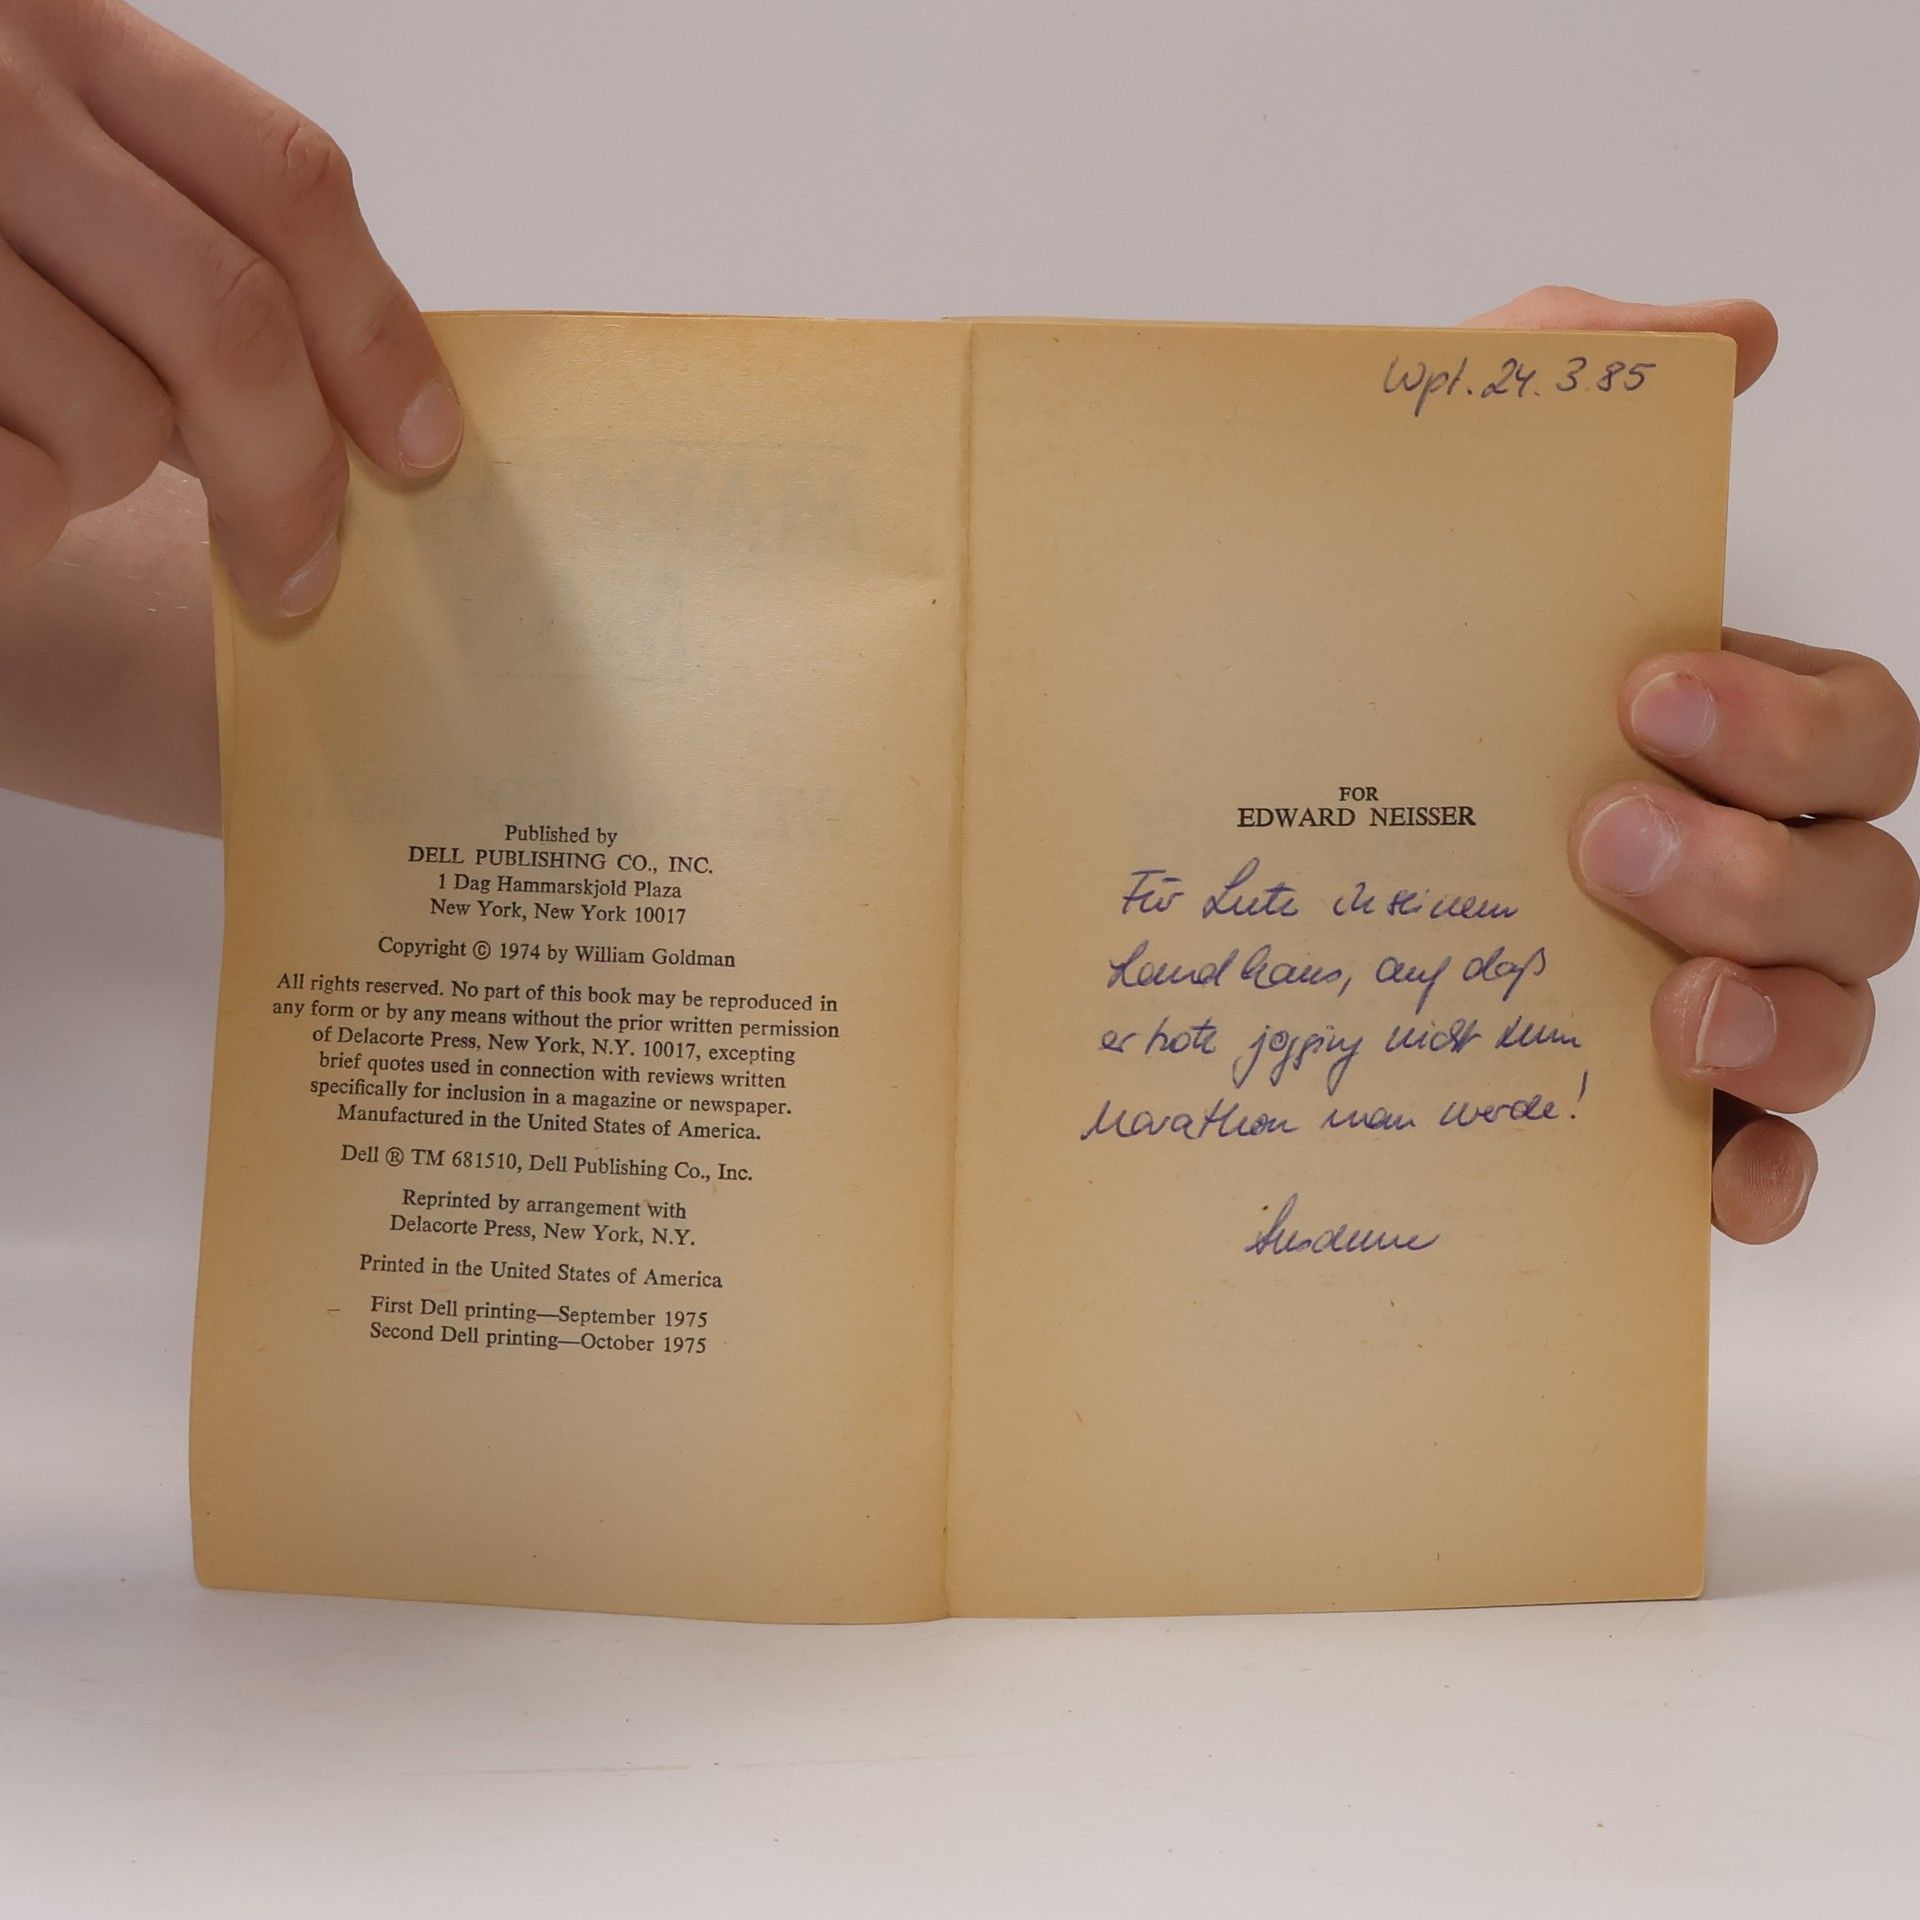 Published by
DELL PUBLISHING CO., INC.
1 Dag Hammarskjold Plaza
New York, New York 10017
Copyright © 1974 by William Goldman
All rights reserved. No part of this book may be reproduced in
any form or by any means without the prior written permission
of Delacorte Press, New York, N.Y. 10017, excepting
brief quotes used in connection with reviews written
specifically for inclusion in a magazine or newspaper.
Manufactured in the United States of America.
Dell ® TM 681510, Dell Publishing Co., Inc.
Reprinted by arrangement with
Delacorte Press, New York, N.Y.
Printed in the United States of America
First Dell printing—September 1975
Second Dell printing—October 1975
Wpt. 24. 3. 85
FOR
EDWARD NEISSER
Für in seinem
Landhaus, auf daß
er trotz jogging nicht zum
Marathon man werde!
Susanne